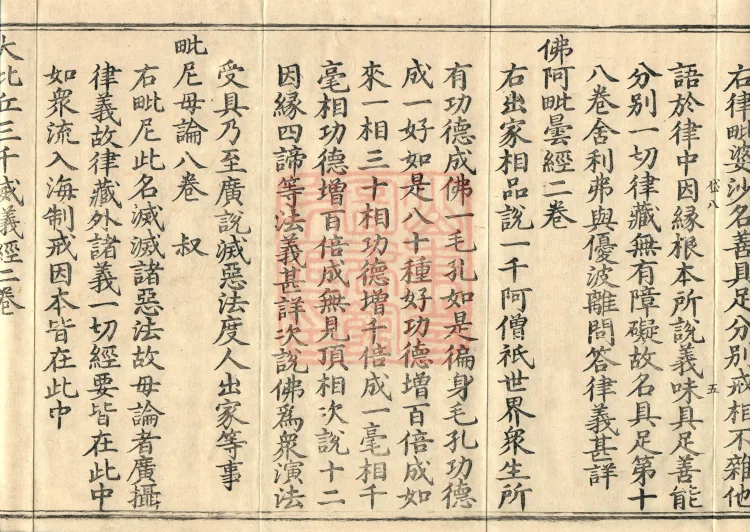 右律毗婆沙名善具足分別戒相不雜他
岱八
五
語於律中因緣根本所說義味具足善能
分別一切律藏無有障礙故名具足第十
八卷舍利弗與優波離問答律義甚詳
佛阿毗曇經二卷
右出家相品說一千阿僧祇世界衆生所
有功德成佛一毛孔如是徧身毛孔功德
成一好如是八十種好功德增百倍成如
來一相三十相功德增千倍成一毫相千
毫相功德增百倍成無見頂相次說十二
因緣四諦等法義甚詳次說佛爲衆演法
受具乃至廣說滅惡法度人出家等事
毗尼母論八卷 叔
右毗尼此名滅滅諸惡法故母論者廣攝
律義故律藏外諸義一切經要皆在此中
如衆流入海制戒因本皆在此中
大比丘三千威義經二卷